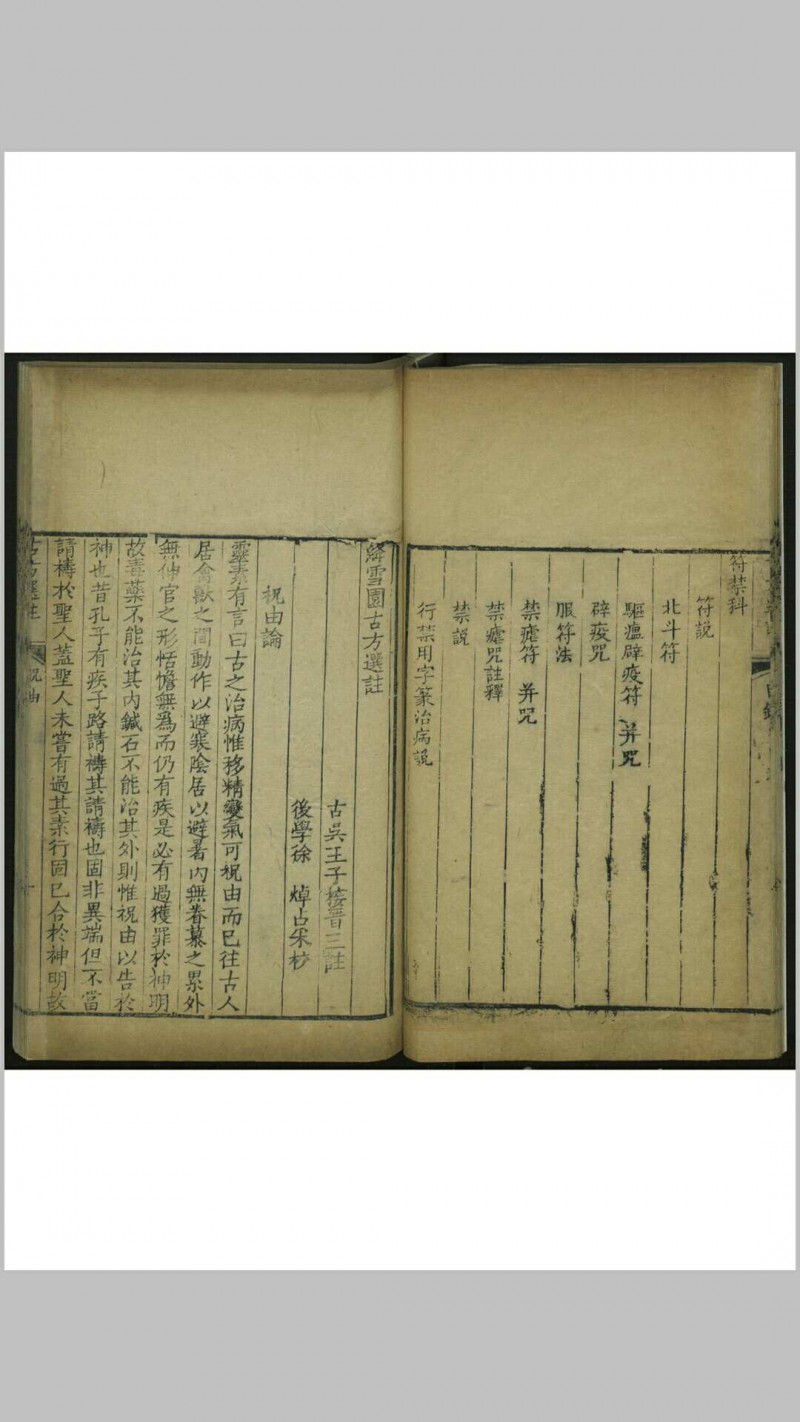 符禁科
符說
北斗符
驅瘟辟疫符 并咒
辟疫咒
服符法
禁瘧符 并咒
禁瘧咒註釋
禁說
行禁用字篆治病說
絳雪園古方選註
古吳王子接晉三註
後學徐 焯占朱校
祝由論
靈素有言曰古之治病惟移精變氣可祝由而已往古人
居禽獸之間動作以避寒陰居以避暑內無眷慕之累外
無伸官之形恬憺無爲而仍有疾是必有過獲罪於神明
故毒藥不能治其內鍼石不能治其外則惟祝由以告於
神也昔孔子有疾子路請禱其請禱也固非異端但不當
請禱於聖人蓋聖人未嘗有過其素行固已合於神明故
古方選註 祝由